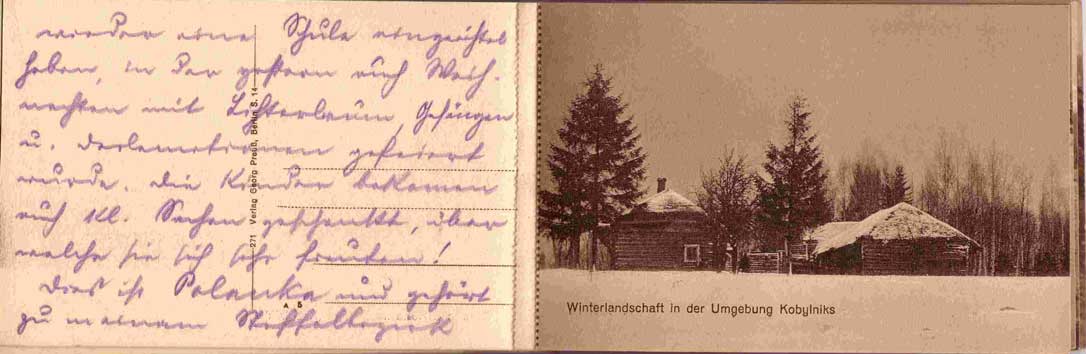 wieder eine Schule eingerichtet
haben, in der gestern auch Weih-
nachten mit Lichterbaum, Gesängen
u. Deklamationen gefeiert
wurde. Die Kinder bekamen
auch kl. Sachen geschenkt, über
welche sie sich sehr freuten!
Dies ist Polanka und gehört
zu meinem
271 Verlag Georg Preuß, Berlin S. 14
A 5
Winterlandschaft in der Umgebung Kobylniks